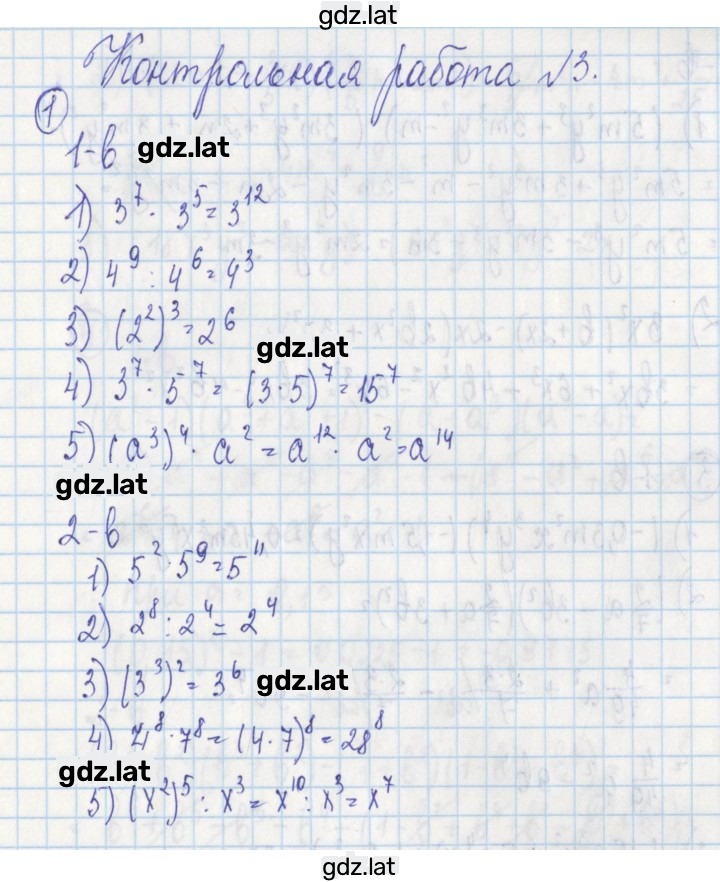 gdz.lat
Контрольная работа №3.
①
1-в gdz.lat
1) 3⁷ · 3⁵ = 3¹²
2) 4⁹ : 4⁶ = 4³
3) (2²)³ = 2⁶
gdz.lat
4) 3⁷ · 5⁷ = (3·5)⁷ = 15⁷
5) (a³)⁴ · a² = a¹² · a² = a¹⁴
gdz.lat
2-в
1) 5² · 5⁹ = 5¹¹
2) 2⁸ : 2⁴ = 2⁴
3) (3³)² = 3⁶ gdz.lat
4) 4⁸ · 7⁸ = (4·7)⁸ = 28⁸
gdz.lat
5) (x²)⁵ : x³ = x¹⁰ : x³ = x⁷
gdz.lat